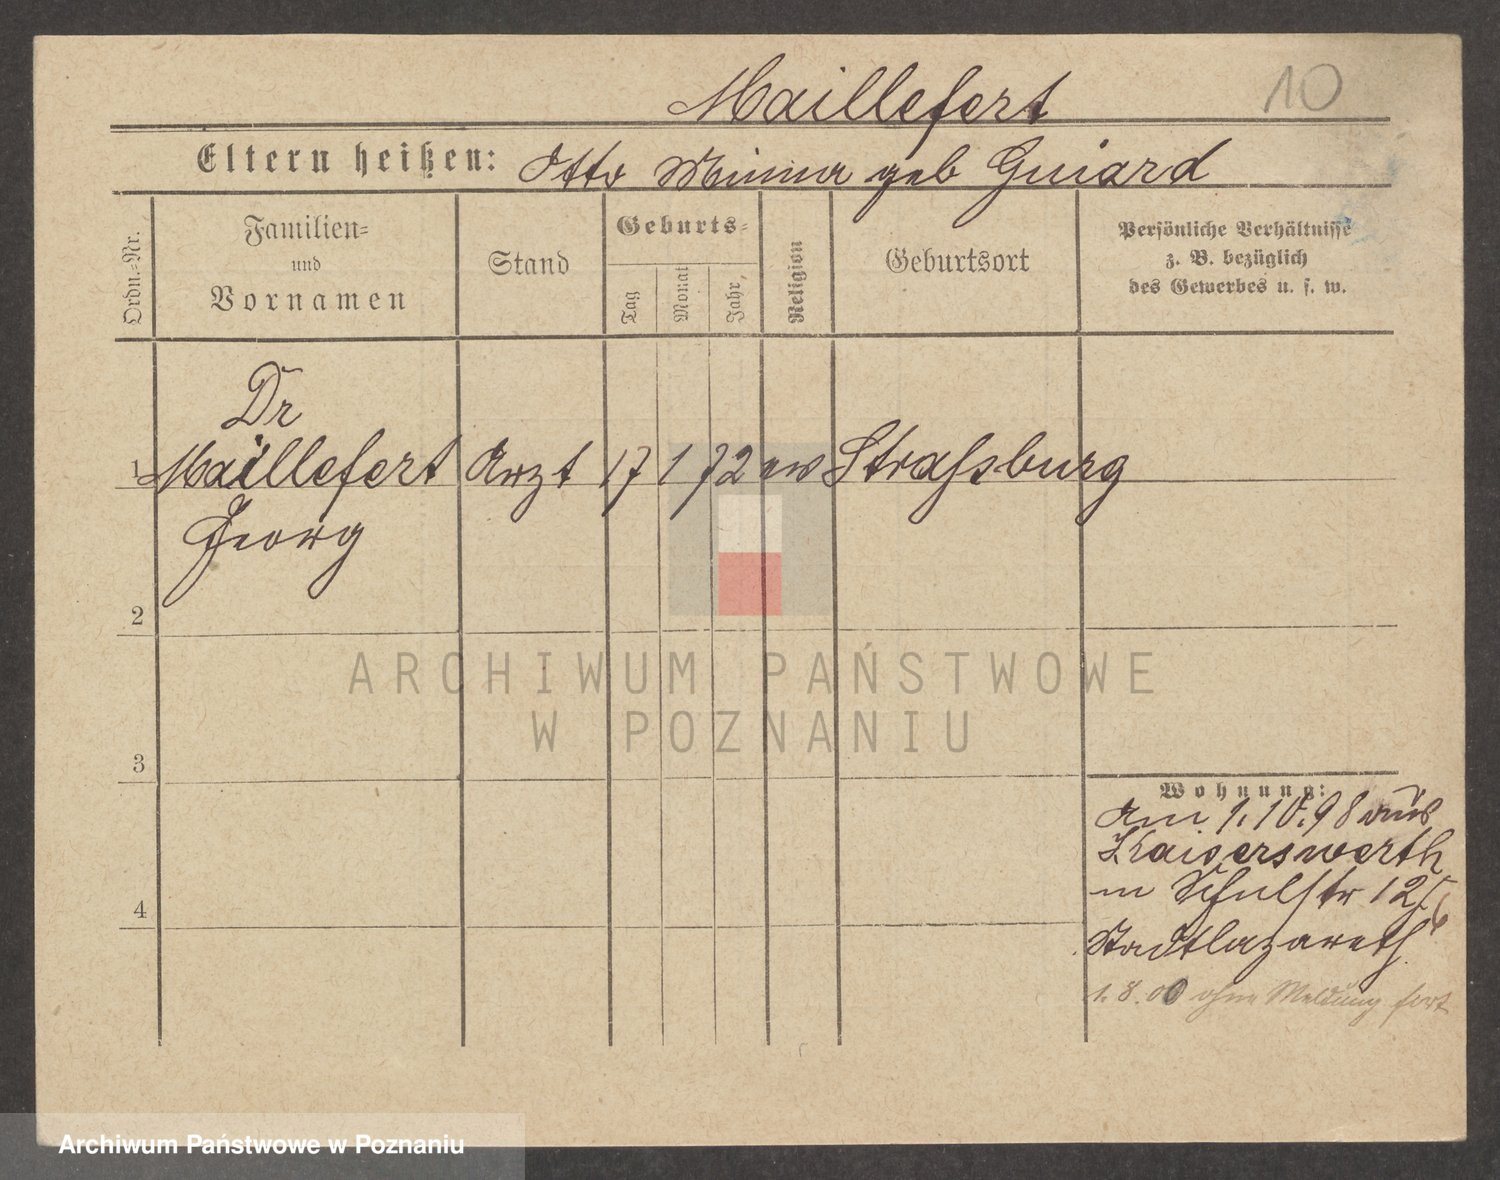 Maillefert
10
Eltern heißen: Otto Minna geb Guiard
Ordn.=Nr.
Familien=
und
Vornamen
Stand
Geburts=
Tag
Monat
Jahr
Religion
Geburtsort
Persönliche Verhältnisse
z. B. bezüglich
des Gewerbes u. s. w.
Dr
1 Maillefert Arzt 17 1 72 ev Strassburg
Georg
2
3
4
Wohnung:
Am 1.10.98 aus
Kaiserswerth
in Schulstr 12/
Stadtlazareth
1.8.00 ohne Meldung fort
ARCHIWUM PAŃSTWOWE
W POZNANIU
Archiwum Państwowe w Poznaniu